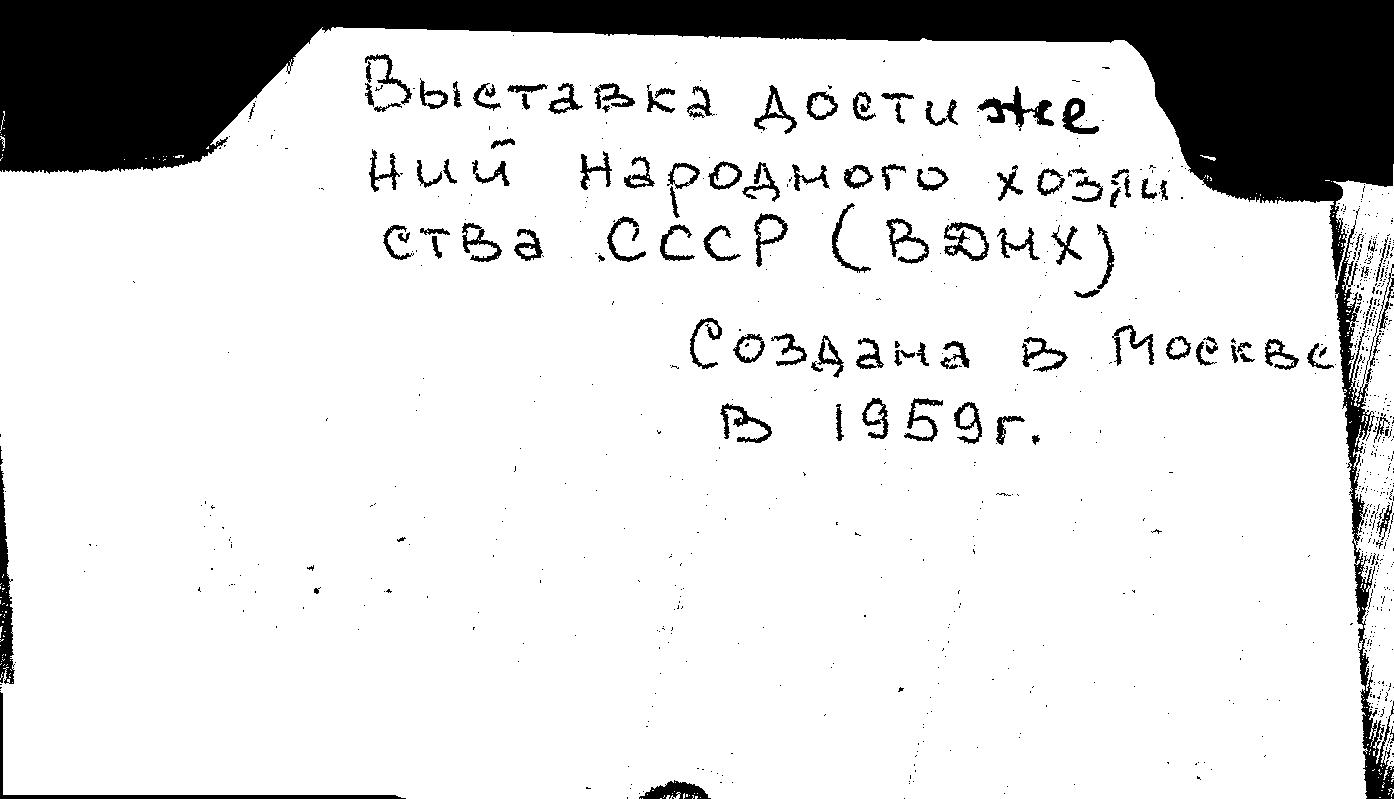 Выставка достиже
ний народного хозяй
ства СССР (ВДНХ)
Создана в Москве
в 1959г.